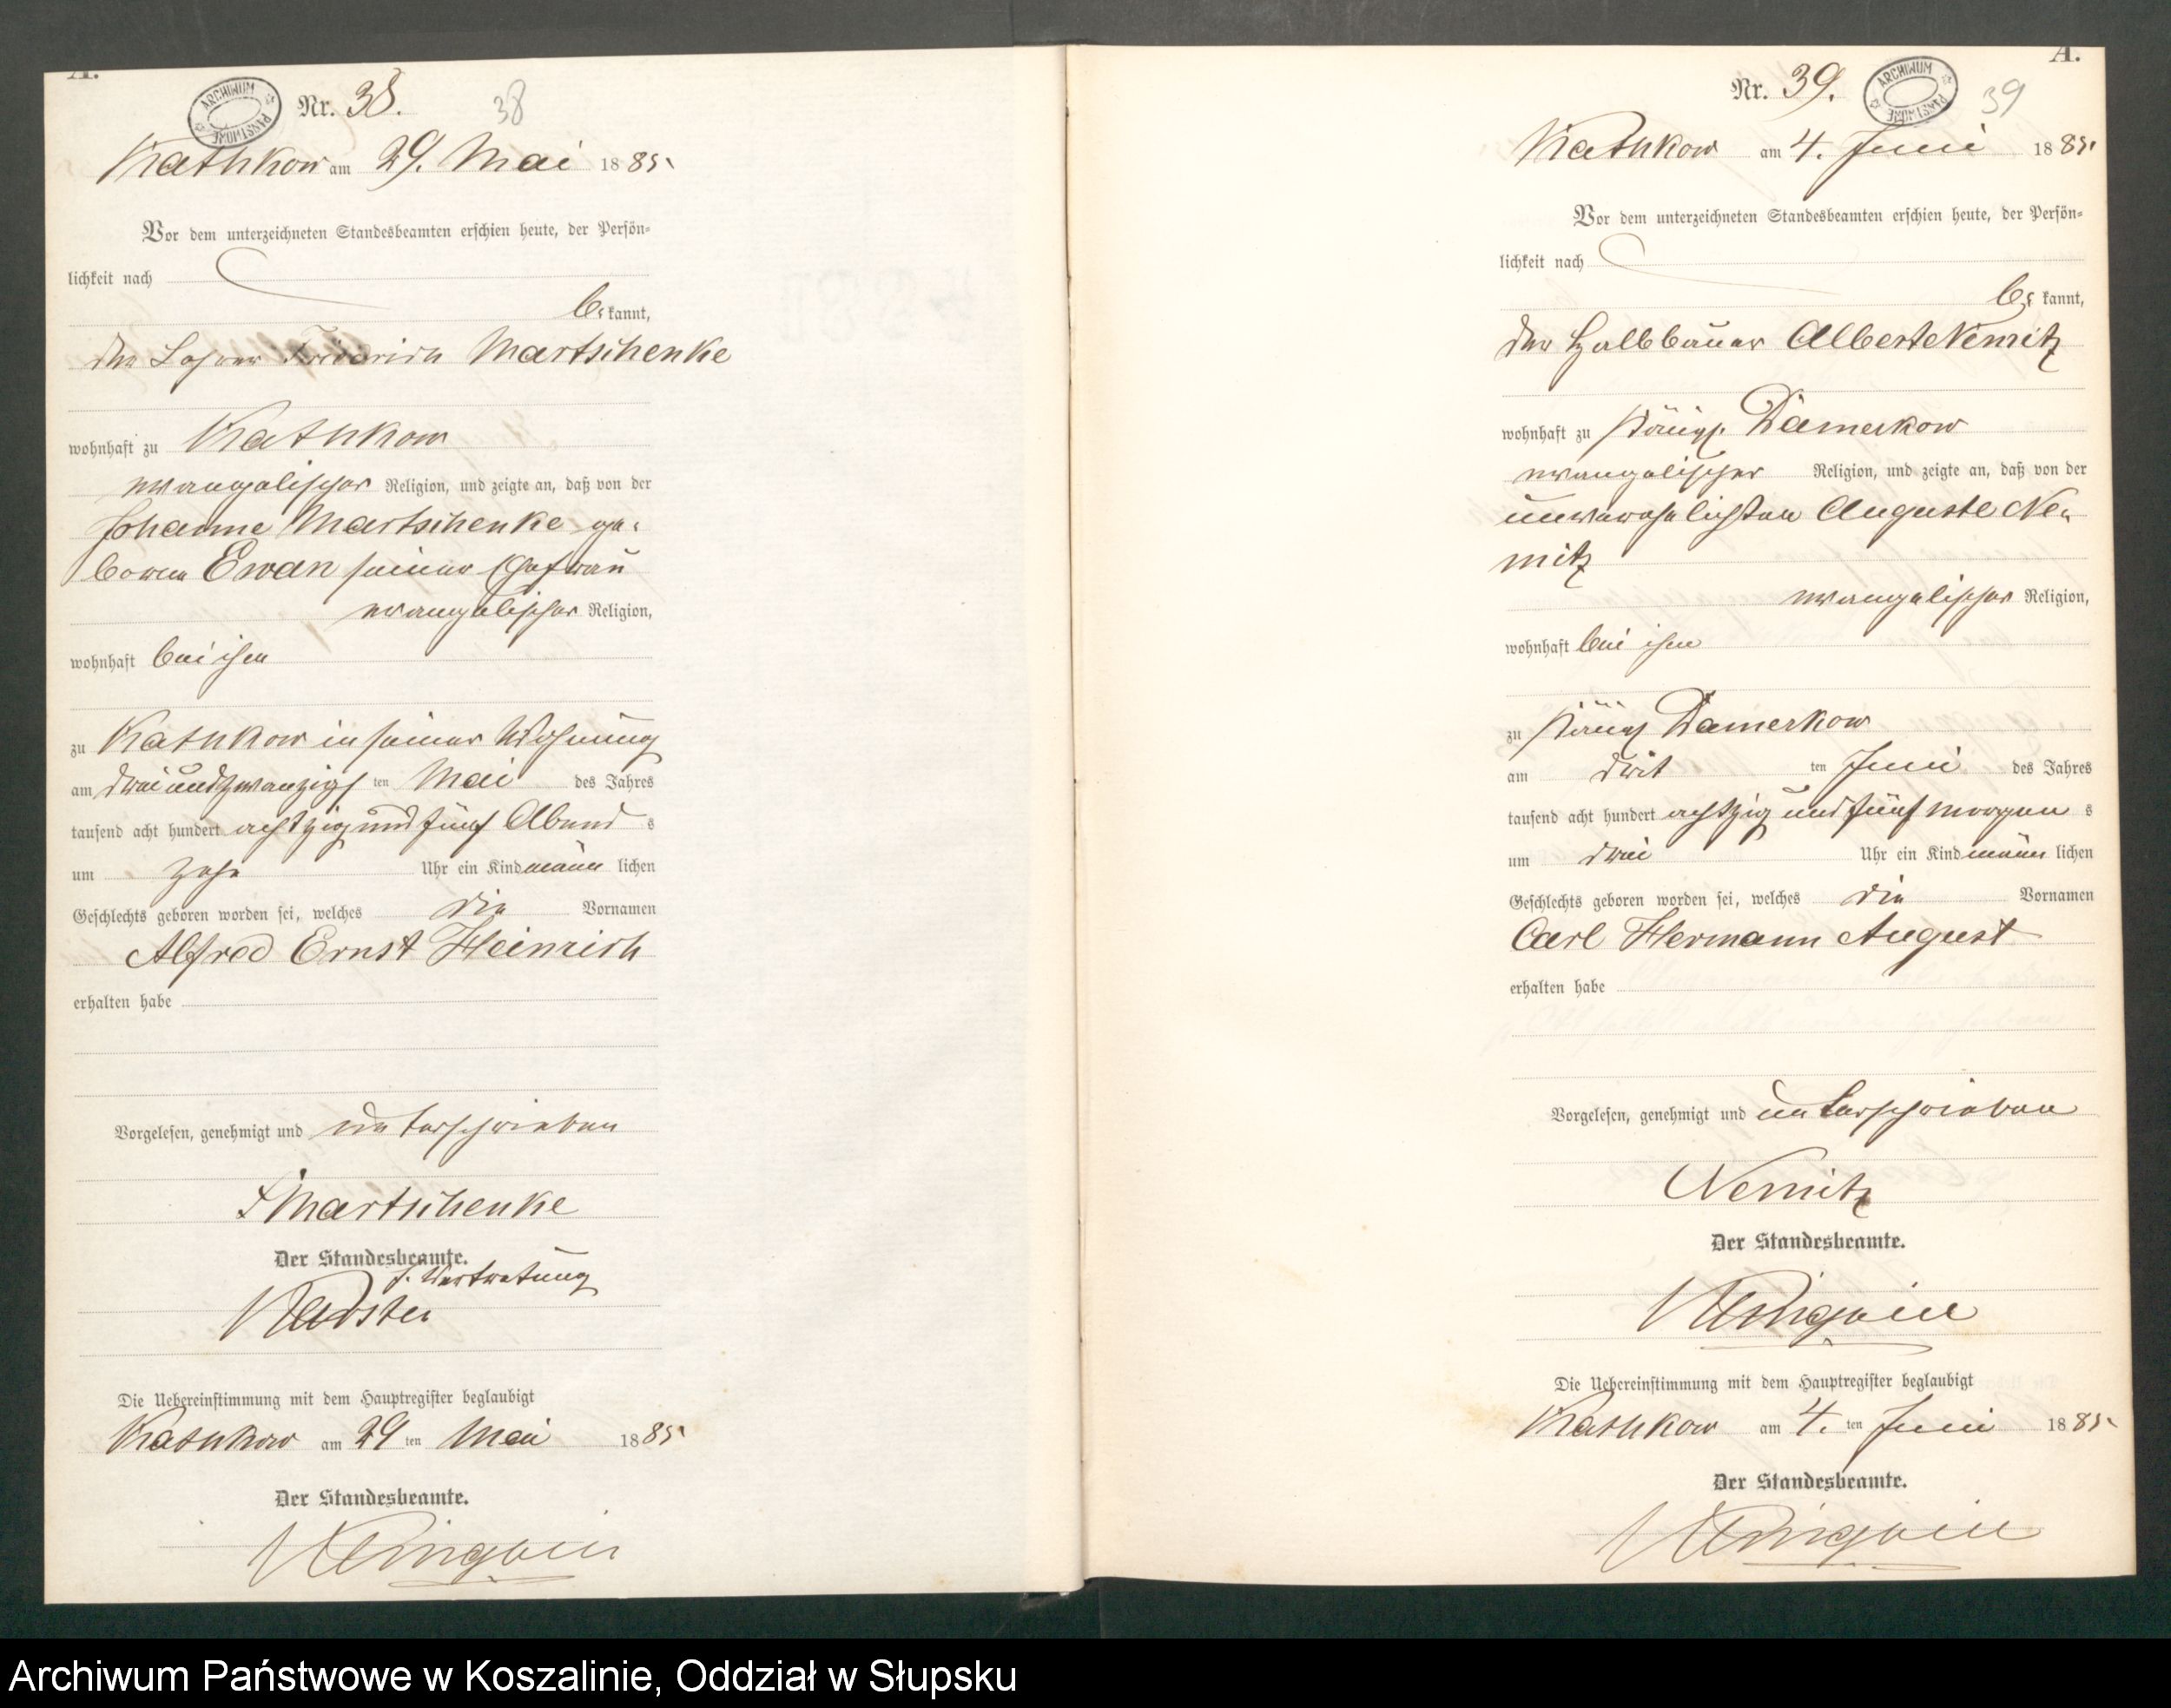 A.
ARCHIWUM PAŃSTWOWE
Nr. 38.
38
Kathkow am 29. Mai 1885
Vor dem unterzeichneten Standesbeamten erschien heute, der Persön-
lichkeit nach
be kannt,
der Lehrer Friedrich Martschenke
wohnhaft zu Kathkow
evangelischer Religion, und zeigte an, daß von der
Johanne Martschenke ge-
borene Ewan seiner Ehefrau
evangelischer Religion,
wohnhaft bei ihm
zu Kathkow in seiner Wohnung
am dreiundzwanzigs ten Mai des Jahres
tausend acht hundert achtzig und fünf Abend s
um zehn Uhr ein Kind männ lichen
Geschlechts geboren worden sei, welches die Vornamen
Alfred Ernst Heinrich
erhalten habe
Vorgelesen, genehmigt und unterschrieben
F Martschenke
Der Standesbeamte.
i. Vertretung
Die Uebereinstimmung mit dem Hauptregister beglaubigt
Kathkow am 29 ten Mai 1885
Der Standesbeamte.
A.
Nr. 39.
ARCHIWUM PAŃSTWOWE
39
Kathkow am 4. Juni 1885
Vor dem unterzeichneten Standesbeamten erschien heute, der Persön-
lichkeit nach
be kannt,
der Halbbauer Albert Nemitz
wohnhaft zu Königl. Damerkow
evangelischer Religion, und zeigte an, daß von der
unverehelichten Auguste Ne-
mitz
evangelischer Religion,
wohnhaft bei ihm
zu Königl Damerkow
am drit ten Juni des Jahres
tausend acht hundert achtzig und fünf Morgen s
um drei Uhr ein Kind männ lichen
Geschlechts geboren worden sei, welches die Vornamen
Carl Hermann August
erhalten habe
Vorgelesen, genehmigt und unterschrieben
Nemitz
Der Standesbeamte.
Die Uebereinstimmung mit dem Hauptregister beglaubigt
Kathkow am 4. ten Juni 1885
Der Standesbeamte.
Archiwum Państwowe w Koszalinie, Oddział w Słupsku